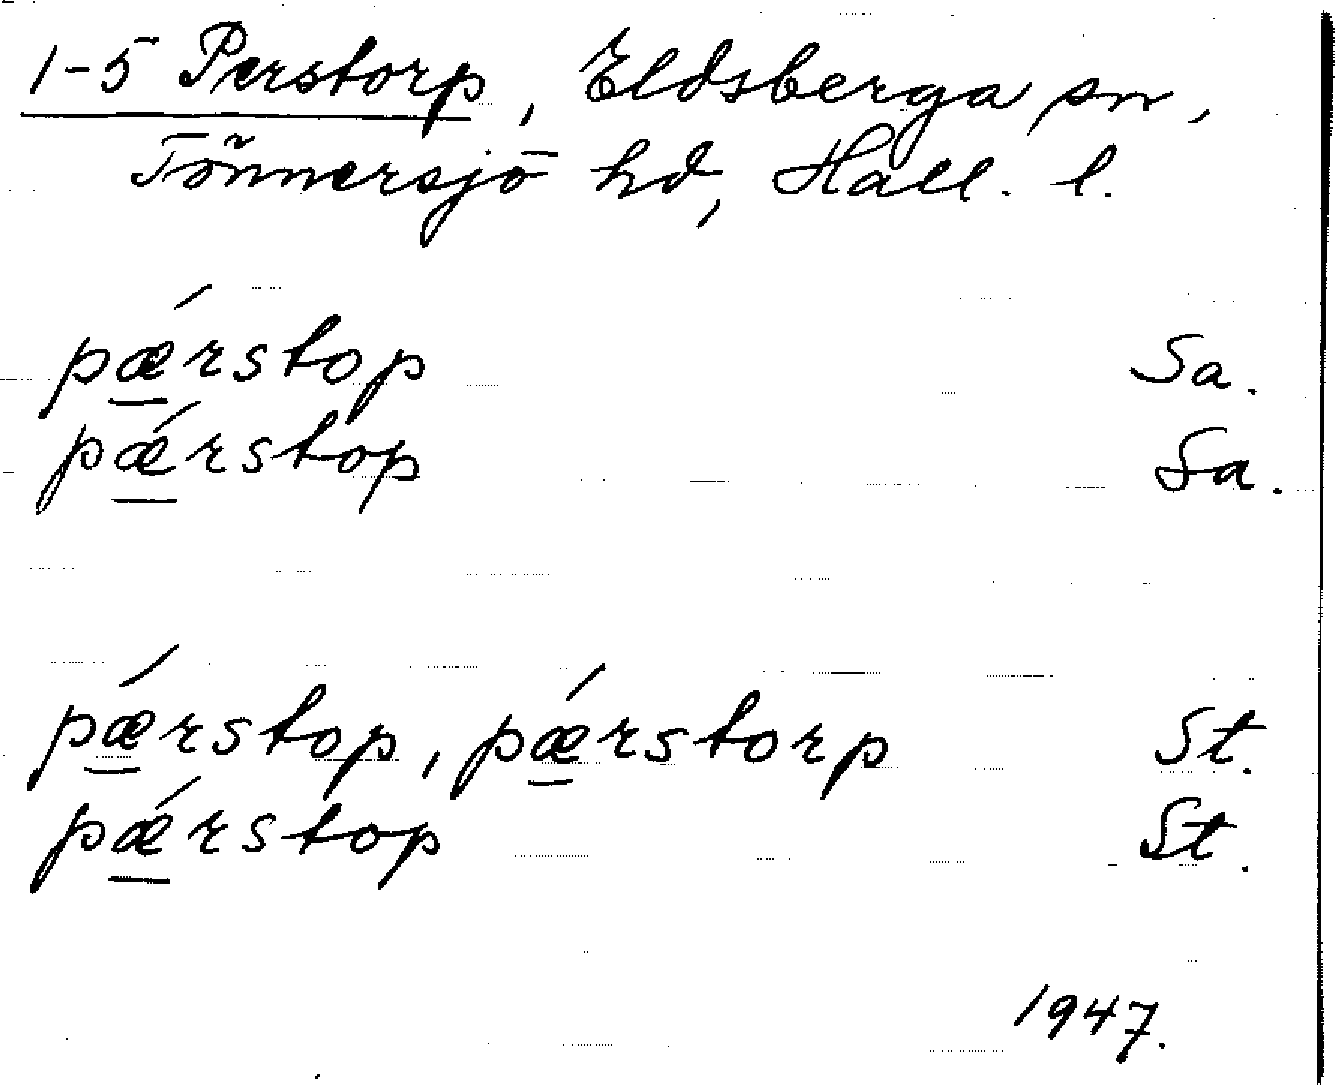 1-5 Perstorp, Eldsberga sn,
Tönnersjö hd, Hall. l.
pǽrstop Sa.
pǽrstop Sa.
pǽrstop, pǽrstorp St.
pǽrstop St.
1947.